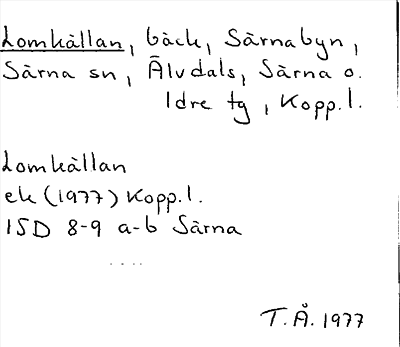 Lomkällan, bäck, Särnabyn,
Särna sn, Älvdals, Särna o.
Idre tg, Kopp.l.
Lomkällan
ek (1977) Kopp.l.
15D 8-9 a-b Särna
T.Å. 1977